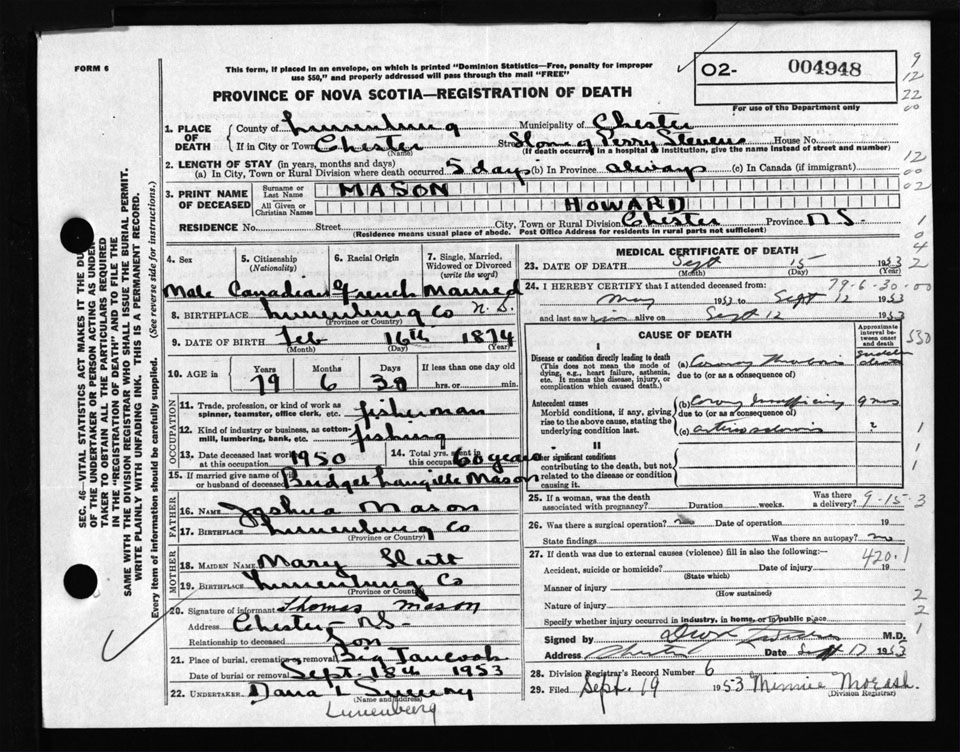 FORM 6
This form, if placed in an envelope, on which is printed "Dominion Statistics—Free, penalty for improper
use $50," and properly addressed will pass through the mail "FREE"
PROVINCE OF NOVA SCOTIA—REGISTRATION OF DEATH
O2- 004948
For use of the Department only
9
12
22
00
12
00
02
1
0
4
2
SEC. 46—VITAL STATISTICS ACT MAKES IT THE DUTY
OF THE UNDERTAKER OR PERSON ACTING AS UNDER-
TAKER TO OBTAIN ALL THE PARTICULARS REQUIRED
IN THE "REGISTRATION OF DEATH" AND TO FILE THE
SAME WITH THE DIVISION REGISTRAR WHO SHALL ISSUE THE BURIAL PERMIT.
WRITE PLAINLY WITH UNFADING INK. THIS IS A PERMANENT RECORD.
Every item of information should be carefully supplied. (See reverse side for instructions.)
1. PLACE OF DEATH County of Lunenburg Municipality of Chester
If in City or Town Chester (Name) Street Home of Perry Stevens House No.
(If death occurred in a hospital or institution, give the name instead of street and number)
2. LENGTH OF STAY (in years, months and days)
(a) In City, Town or Rural Division where death occurred 5 days (b) In Province always (c) In Canada (if immigrant)
3. PRINT NAME OF DECEASED Surname or Last Name MASON
All Given or Christian Names HOWARD
RESIDENCE No. Street City, Town or Rural Division Chester Province NS
(Residence means usual place of abode. Post Office Address for residents in rural parts not sufficient)
4. Sex 5. Citizenship (Nationality) 6. Racial Origin 7. Single, Married, Widowed or Divorced (write the word)
Male Canadian French Married
8. BIRTHPLACE Lunenburg Co N.S.
(Province or Country)
9. DATE OF BIRTH Feb 16th 1874
(Month) (Day) (Year)
10. AGE in Years Months Days If less than one day old
79 6 30 hrs. or min.
OCCUPATION
11. Trade, profession, or kind of work as spinner, teamster, office clerk, etc. fisherman
12. Kind of industry or business, as cotton-mill, lumbering, bank, etc. fishing
13. Date deceased last worked at this occupation 1950 14. Total yrs. spent in this occupation 60 years
15. If married give name of wife or husband of deceased Bridget Langille Mason
FATHER
16. Name Joshua Mason
17. Birthplace Lunenburg Co
(Province or Country)
MOTHER
18. Maiden Name Mary
19. Birthplace Lunenburg Co
(Province or Country)
20. Signature of informant Thomas Mason
Address Chester NS
Relationship to deceased Son
21. Place of burial, cremation or removal Big Tancook
Date of burial or removal Sept. 18th 1953
22. UNDERTAKER Dana L Sweeny
(Name and address)
Lunenburg
MEDICAL CERTIFICATE OF DEATH
23. DATE OF DEATH Sept 15 1953
(Month) (Day)
24. I HEREBY CERTIFY that I attended deceased from: 79-6-30-00
May 1953 to Sept 12 1953
and last saw him alive on Sept 12 1953
CAUSE OF DEATH
Approximate interval between onset and death
530
I
Disease or condition directly leading to death
(This does not mean the mode of dying, e.g., heart failure, asthenia, etc. It means the disease, injury, or complication which caused death.)
(a) Coronary Thrombosis sudden
due to (or as a consequence of)
Antecedent causes
Morbid conditions, if any, giving rise to the above cause, stating the underlying condition last.
(b) Coronary Insufficiency 9 mos
due to (or as a consequence of)
(c) arteriosclerosis 2
1
II
Other significant conditions
contributing to the death, but not related to the disease or condition causing it.
1
1
25. If a woman, was the death associated with pregnancy? Duration weeks. Was there a delivery? 9-15-3
26. Was there a surgical operation? no Date of operation 19
State findings Was there an autopsy? no
27. If death was due to external causes (violence) fill in also the following:— 420.1
Accident, suicide or homicide? Date of injury 19
(State which)
Manner of injury
(How sustained)
2
Nature of injury
2
Specify whether injury occurred in industry, in home, or in public place
1
Signed by M.D.
Address Chester Date Sept 17 1953
28. Division Registrar's Record Number 6
29. Filed Sept. 19 1953 Minnie Morash.
(Division Registrar)